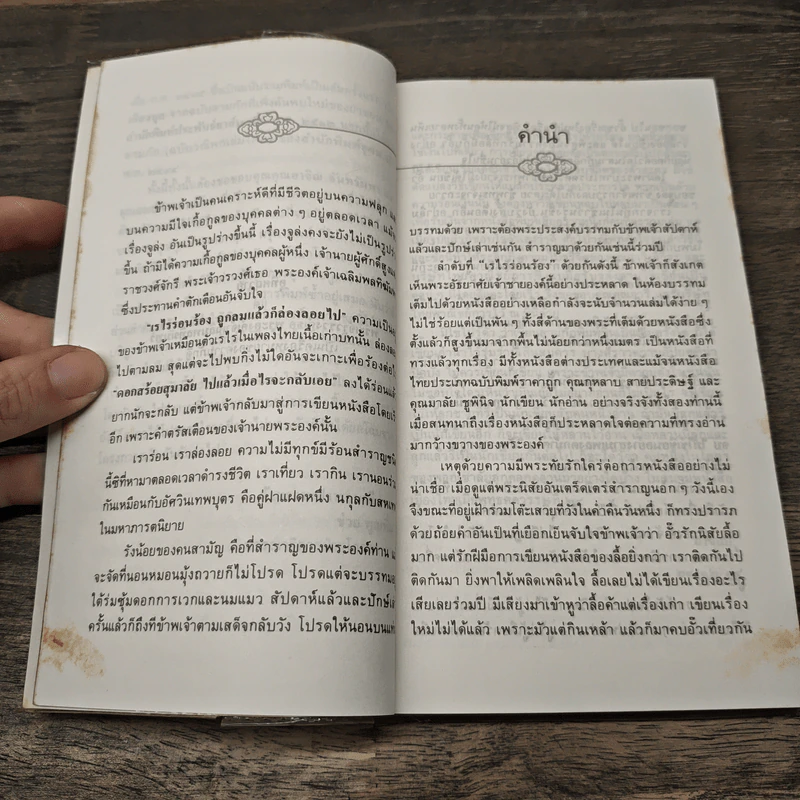 ข้าพเจ้าเป็นคนเคราะห์ดีที่มีชีวิตอยู่บนความฟลุก
บนความมีใจเกื้อกูลของบุคคลต่าง ๆ อยู่ตลอดเวลา
เรื่องจูล่ง อันเป็นรูปร่างขึ้นนี้ เรื่องจูล่งคงจะยังไม่เป็น
ขึ้น ถ้ามิได้ความเกื้อกูลของบุคคลผู้หนึ่ง เจ้านายผู้ศักดิ์
ราชวงศ์จักรี พระเจ้าวรวงศ์เธอ พระองค์เจ้าเฉลิมพลทิฆัม
ซึ่งประทานคำตักเตือนอันจับใจ
"เรไรร่อนร้อง ถูกลมแล้วก็ล่องลอยไป" ความเป็น
ของข้าพเจ้าเหมือนตัวเรไรในเพลงไทยเนื้อเก่าบทนั้น
ไปตามลม สุดแต่จะไปพบกิ่งไม้ใดอันจะเกาะเพื่อร้อง
"ดอกสร้อยสุมาลัย ไปแล้วเมื่อไรจะกลับเอย" ลงได้ร่อน
ยากนักจะกลับ แต่ข้าพเจ้ากลับมาสู่การเขียนหนังสือโดย
อีก เพราะคำตรัสเตือนของเจ้านายพระองค์นั้น
เราร่อน เราล่องลอย ความไม่มีทุกข์มีร้อนสำราญ
นี้ซิที่หามาตลอดเวลาดำรงชีวิต เราเที่ยว เรากิน เรานอน
กันเหมือนกับอัศวินเทพบุตร คือคู่ฝาแฝดหนึ่ง นกุลกับ
ในมหาภารตนิยาย
รังน้อยของคนสามัญ คือที่สำราญของพระองค์ท่าน
จะจัดที่นอนหมอนมุ้งถวายก็ไม่โปรด โปรดแต่จะบรรทม
ใต้ร่มซุ้มดอกการเวกและนมแมว สัปดาห์แล้วและปักษ์
ครั้นแล้วก็ถึงทีข้าพเจ้าตามเสด็จกลับวัง โปรดให้นอนบน
คำนำ
บรรทมด้วย เพราะต้องพระประสงค์บรรทมกับข้าพเจ้าสัปดาห์
แล้วและปักษ์เล่าเช่นกัน สำราญมาด้วยกันเช่นนี้ร่วมปี
ลำดับที่ "เรไรร่อนร้อง" ด้วยกันดังนี้ ข้าพเจ้าก็สังเกต
เห็นพระอัธยาศัยเจ้าชายองค์นี้อย่างประหลาด ในห้องบรรทม
เต็มไปด้วยหนังสืออย่างเหลือกำลังจะนับจำนวนเล่มได้ง่าย ๆ
ไม่ใช่ร้อยแต่เป็นพัน ๆ ทั้งสี่ด้านของพระที่เต็มด้วยหนังสือซึ่ง
ตั้งแล้วก็สูงขึ้นมาจากพื้นไม่น้อยกว่าหนึ่งเมตร เป็นหนังสือที่
ทรงแล้วทุกเรื่อง มีทั้งหนังสือต่างประเทศและแม้จนหนังสือ
ไทยประเภทฉบับพิมพ์ราคาถูก คุณกุหลาบ สายประดิษฐ์ และ
คุณมาลัย ชูพินิจ นักเขียน นักอ่าน อย่างจริงจังทั้งสองท่านนี้
เมื่อสนทนาถึงเรื่องหนังสือก็ประหลาดใจต่อความที่ทรงอ่าน
มากกว้างขวางของพระองค์
เหตุด้วยความมีพระทัยรักใคร่ต่อการหนังสืออย่างไม่
น่าเชื่อ เมื่อดูแต่พระนิสัยอันเตร็ดเตร่สำราญนอก ๆ วังนี้เอง
จึงขณะที่อยู่เฝ้าร่วมโต๊ะเสวยที่วังในค่ำคืนวันหนึ่ง ก็ทรงปรารภ
ด้วยถ้อยคำอันเป็นที่เยือกเย็นจับใจข้าพเจ้าว่า อั๊วรักนิสัยลื้อ
มาก แต่รักฝีมือการเขียนหนังสือของลื้อยิ่งกว่า เราติดกันไป
ติดกันมา ยิ่งพาให้เพลิดเพลินใจ ลื้อเลยไม่ได้เขียนเรื่องอะไร
เสียเลยร่วมปี มีเสียงมาเข้าหูว่าลื้อค้าแต่เรื่องเก่า เขียนเรื่อง
ใหม่ไม่ได้แล้ว เพราะมัวแต่กินเหล้า แล้วก็มาคบอั๊วเที่ยวกัน